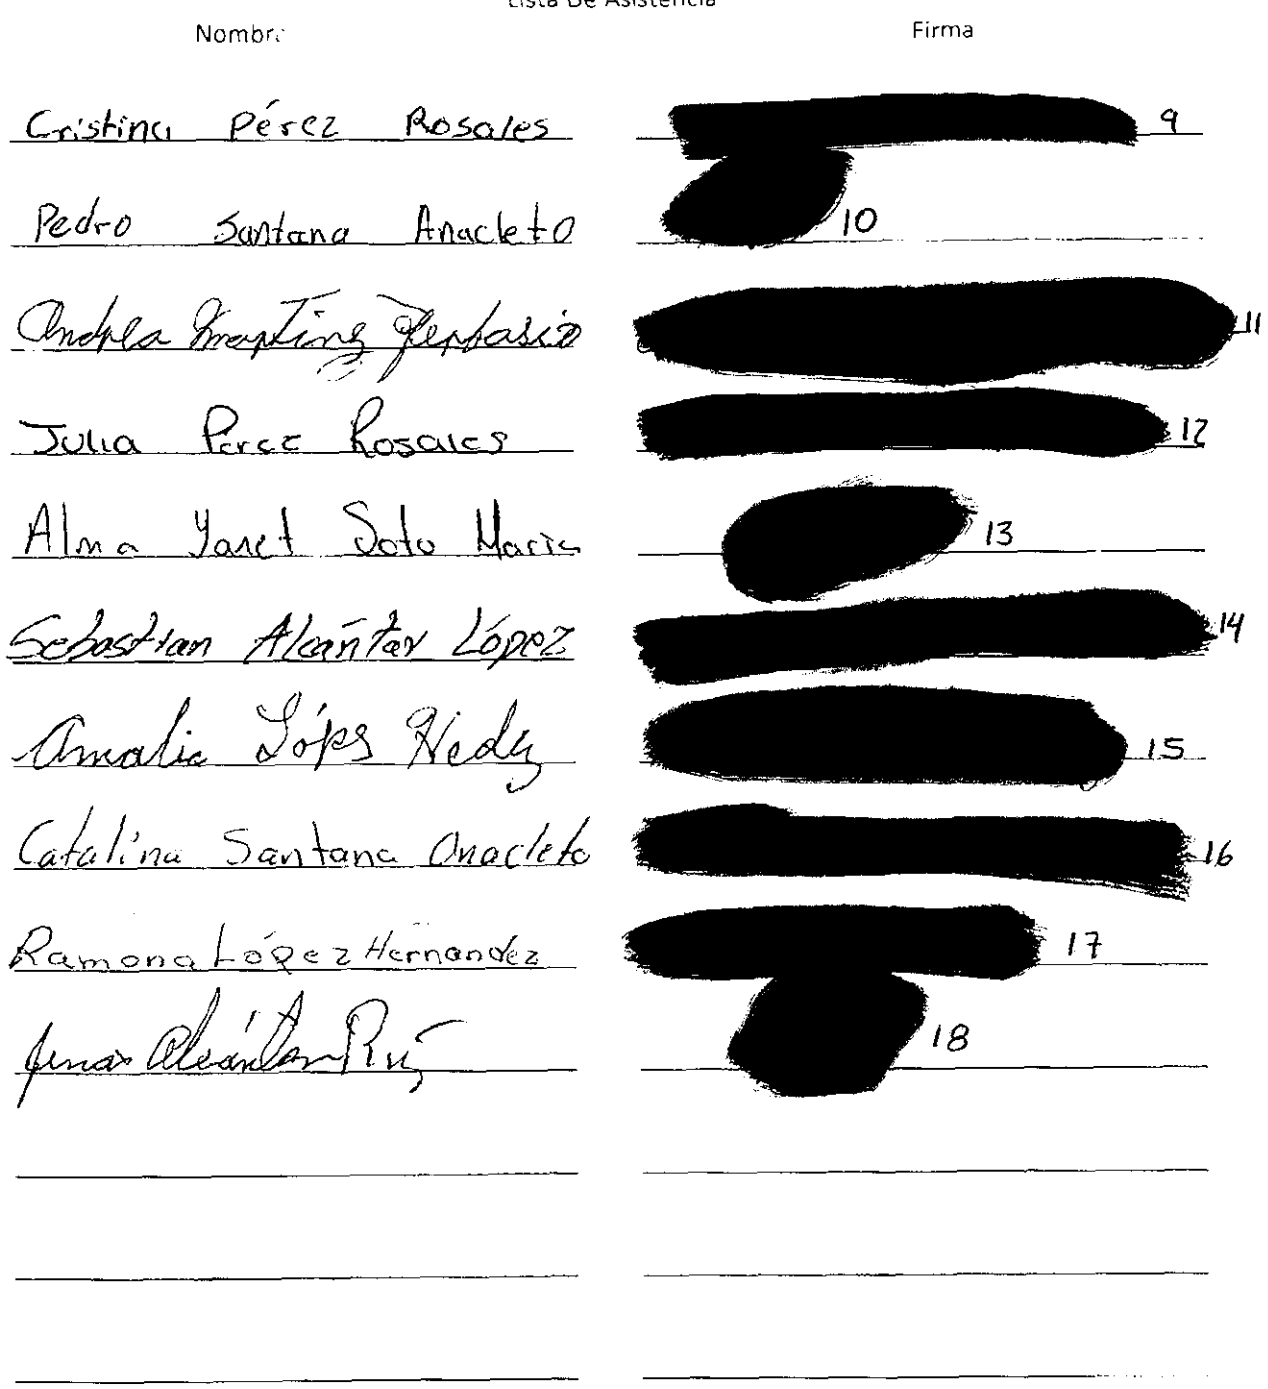 Lista De Asistencia
Nombre Firma
Cristina Pérez Rosales 9
Pedro Santana Anacleto 10
Andrea Martinez 11
Julia Perez Rosales 12
Alma Yanet Soto Macias 13
Sebastian Alcántar López 14
Amalia Lópes Hedz 15
Catalina Santana Anacleto 16
Ramona López Hernandez 17
Alcántar Ruiz 18